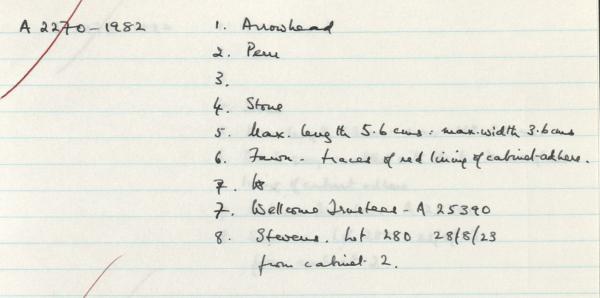 A 2270-1982 1. Arrowhead
2. Peru
3.
4. Stone
5. Max. length 5.6 cms : max. width 3.6 cms
6. Fawn - traces of red lining of cabinet adhere.
7.
7. Wellcome Trustees - A 25390
8. Stevens. Lot 280 28/8/23
from cabinet 2.